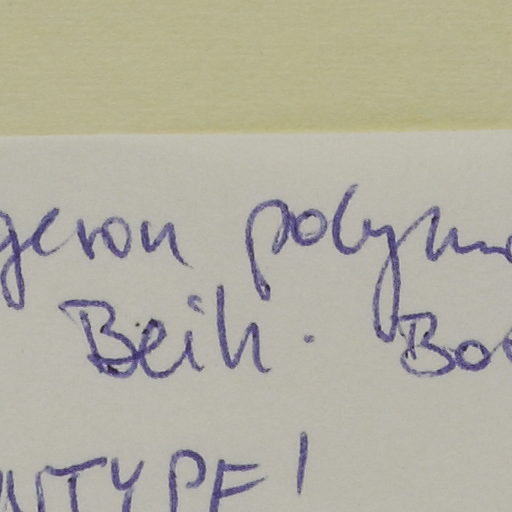 geron polym
Beih. Bo
NTYPE!